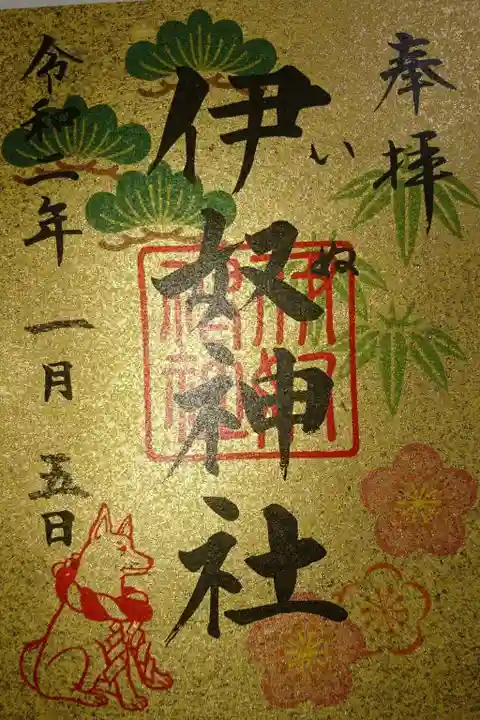 奉拝
いぬ
伊奴神社
令和二年 一月 五日